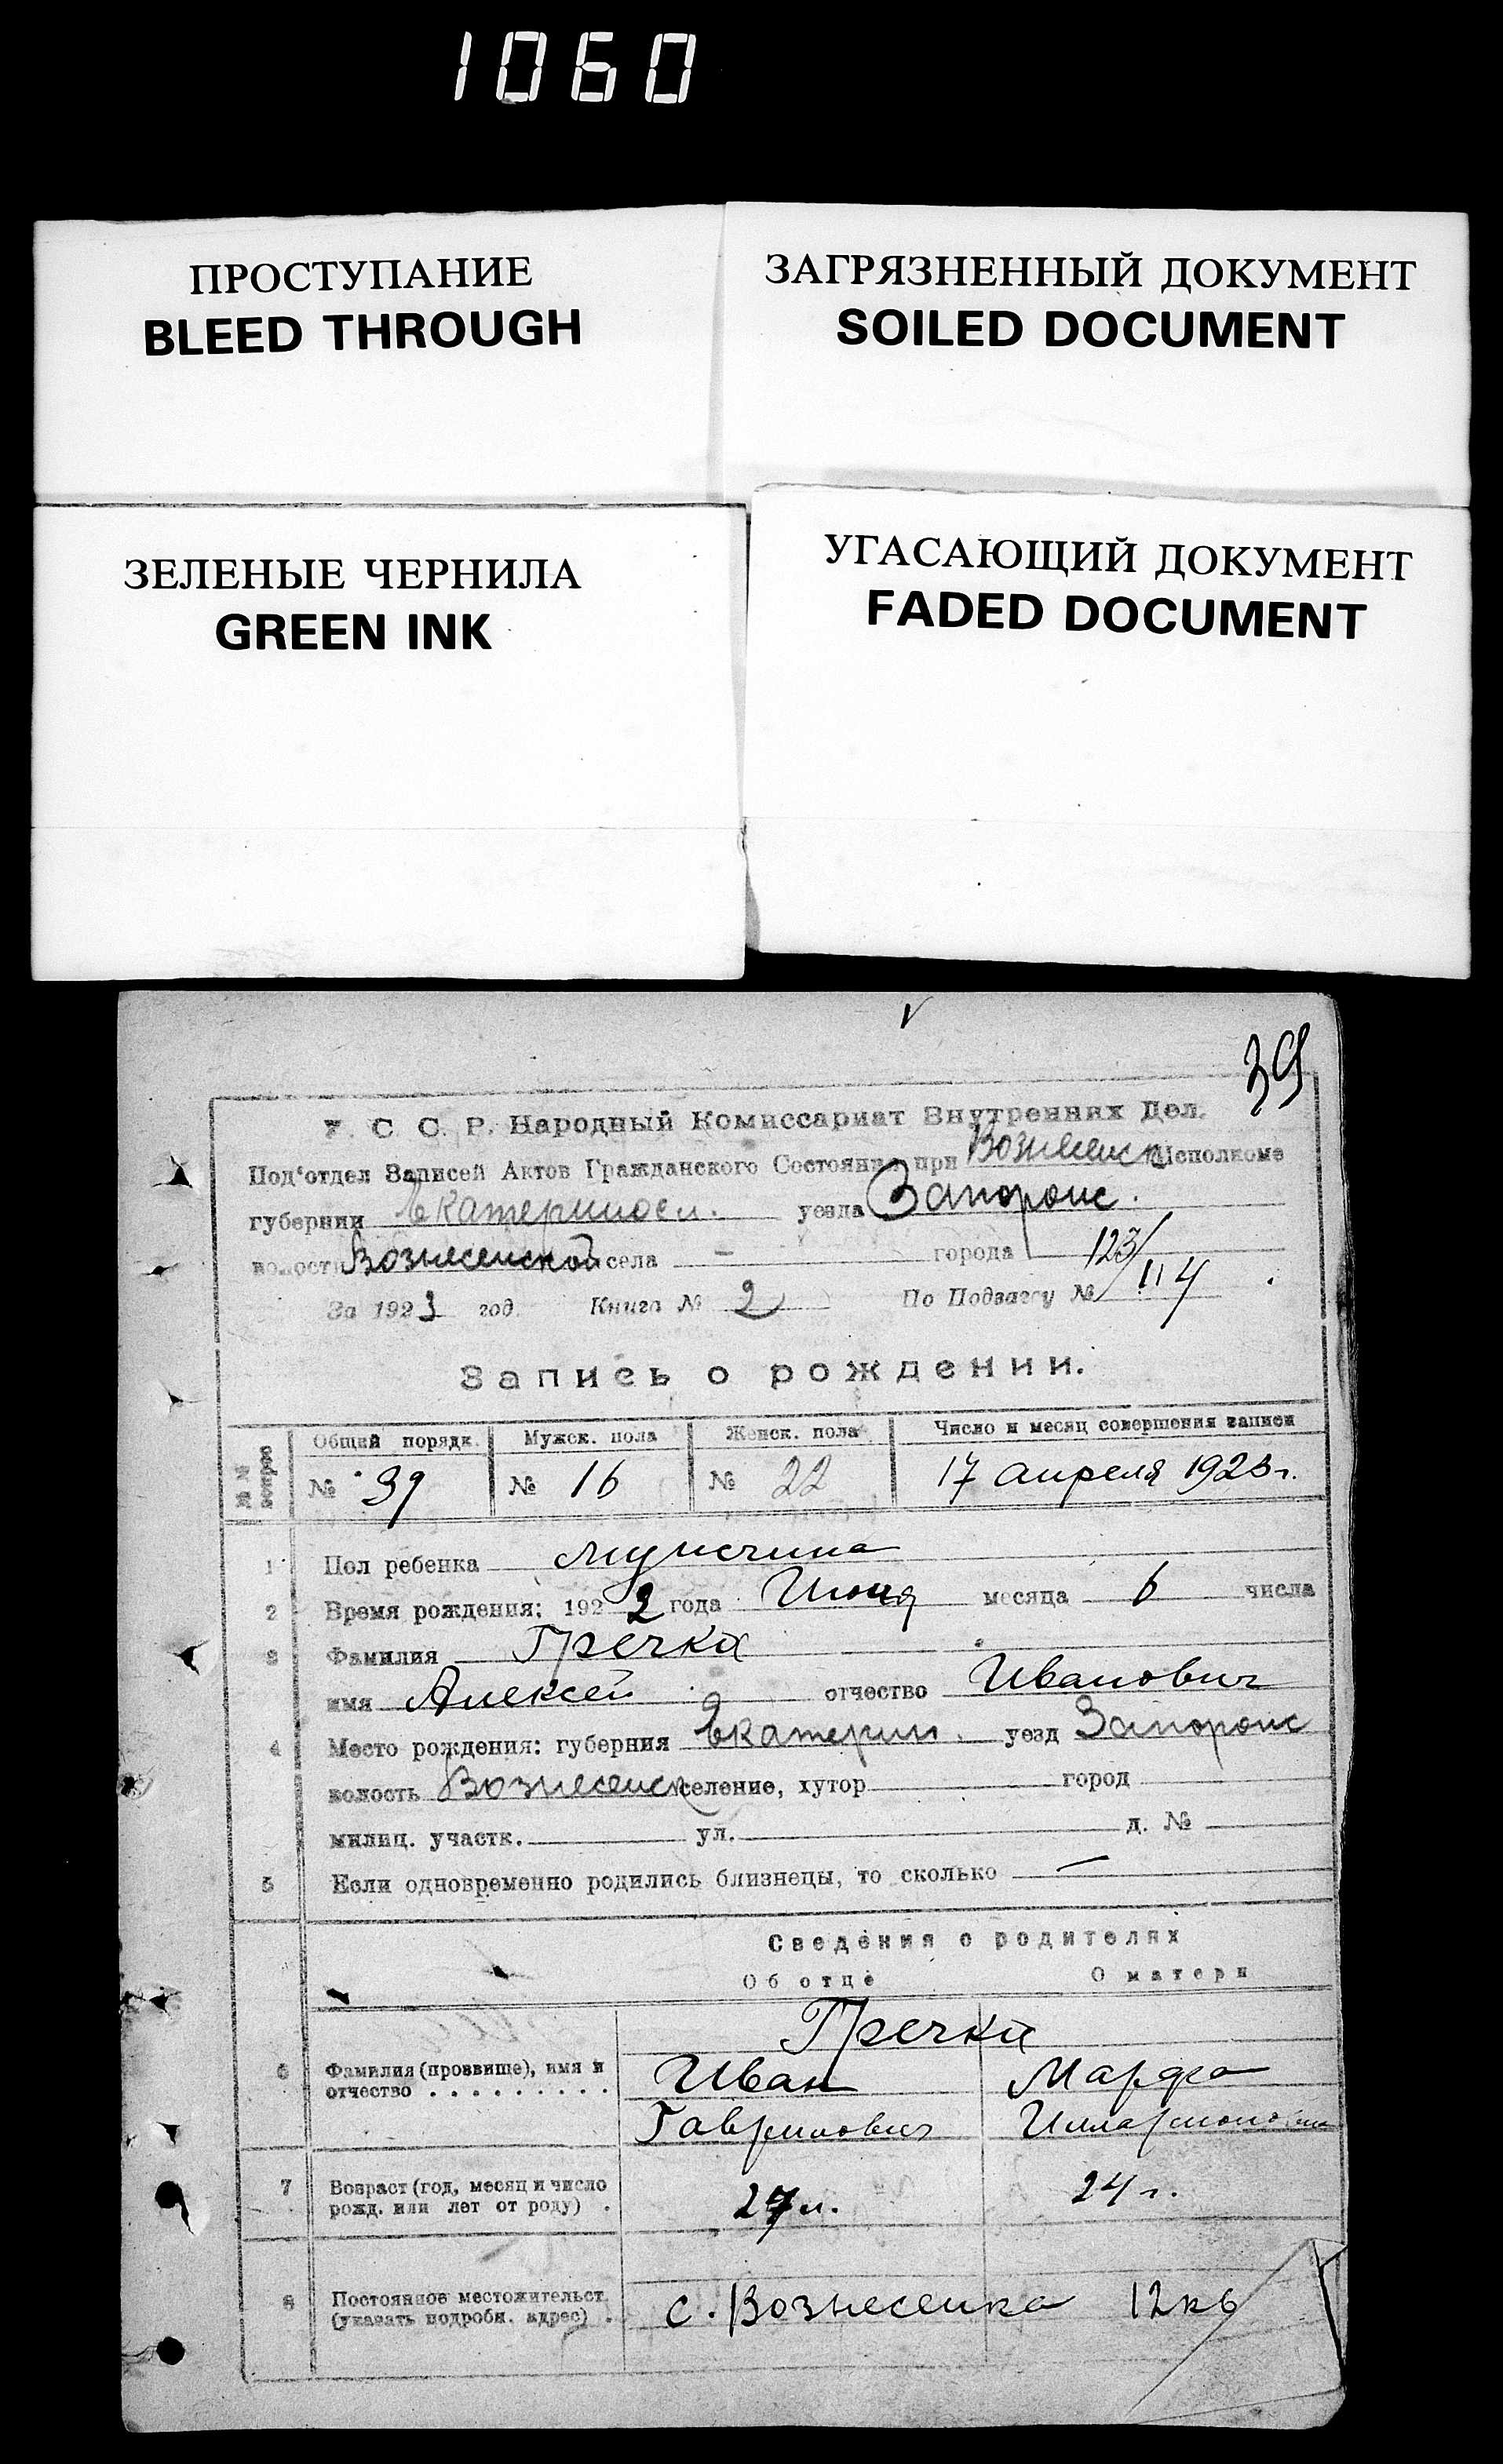 1060
ПРОСТУПАНИЕ
BLEED THROUGH
ЗАГРЯЗНЕННЫЙ ДОКУМЕНТ
SOILED DOCUMENT
ЗЕЛЕНЫЕ ЧЕРНИЛА
GREEN INK
УГАСАЮЩИЙ ДОКУМЕНТ
FADED DOCUMENT
39
У. С. С. Р. Народный Комиссариат Внутренних Дел.
Под'отдел Записей Актов Гражданского Состояния при Вознесенск Исполкоме
губернии Екатериносл. уезда Запорож.
волости Вознесенской села – города
За 1923 год. Книга № 2 По Подзагсу № 123/114
Запись о рождении.
№№ вопрос
Общий порядк. Мужск. пола Женск. пола Число и месяц совершения записи
№ 39 № 16 № 22 17 апреля 1923 г.
1 Пол ребенка мужчина
2 Время рождения: 1922 года Июня месяца 6 числа
3 Фамилия Гречка
имя Алексей отчество Иванович
4 Место рождения: губерния Екатерин. уезд Запорож
волость Вознесенск селение, хутор город
милиц. участк. ул. д. №
5 Если одновременно родились близнецы, то сколько —
Сведения о родителях
Об отце О матери
Гречка
6 Фамилия (прозвище), имя и Иван Марфа
отчество Гавриилович Иллариона
7 Возраст (год, месяц и число 27 л. 24 г.
рожд. или лет от роду) .
8 Постоянное местожительст. с. Вознесенка 12 кв
(указать подробн. адрес) .